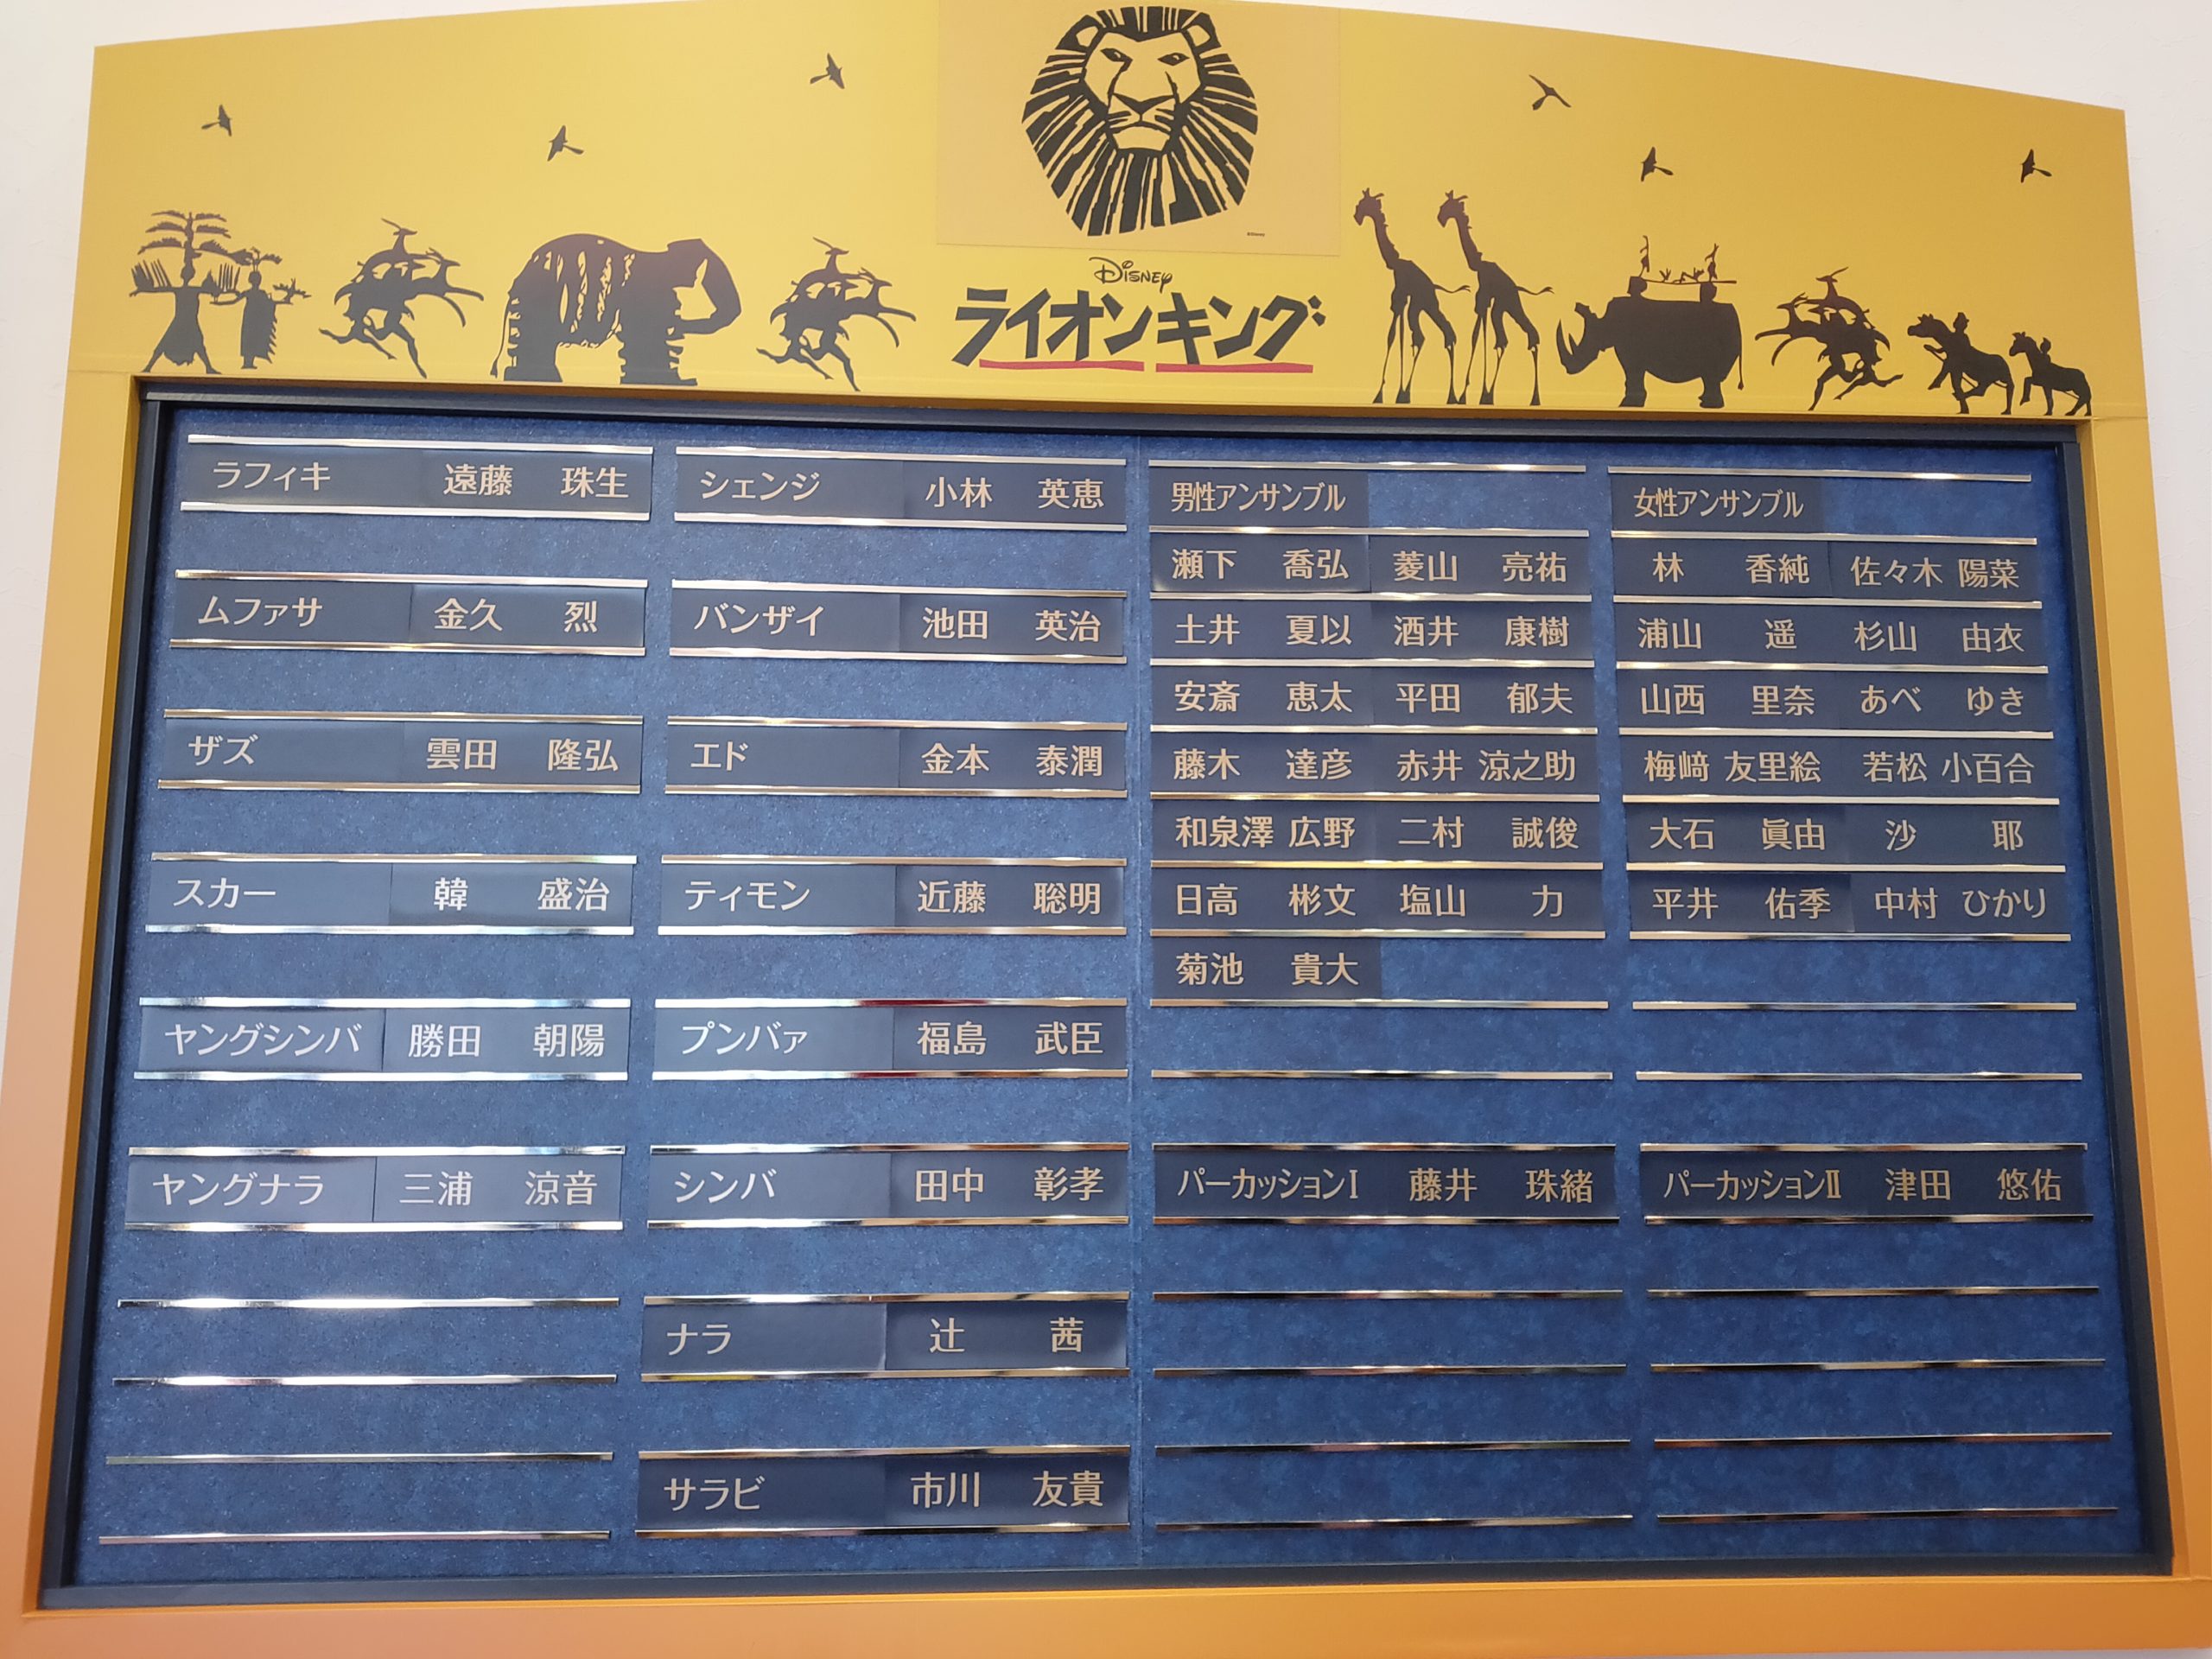 Disney
ライオンキング
ラフィキ 遠藤 珠生
ムファサ 金久 烈
ザズ 雲田 隆弘
スカー 韓 盛治
ヤングシンバ 勝田 朝陽
ヤングナラ 三浦 涼音
シェンジ 小林 英恵
バンザイ 池田 英治
エド 金本 泰潤
ティモン 近藤 聡明
プンバァ 福島 武臣
シンバ 田中 彰孝
ナラ 辻 茜
サラビ 市川 友貴
男性アンサンブル
瀬下 喬弘 菱山 亮祐
土井 夏以 酒井 康樹
安斎 恵太 平田 郁夫
藤木 達彦 赤井 涼之助
和泉澤 広野 二村 誠俊
日高 彬文 塩山 力
菊池 貴大
パーカッションⅠ 藤井 珠緒
女性アンサンブル
林 香純 佐々木 陽菜
浦山 遥 杉山 由衣
山西 里奈 あべ ゆき
梅﨑 友里絵 若松 小百合
大石 眞由 沙 耶
平井 佑季 中村 ひかり
パーカッションⅡ 津田 悠佑